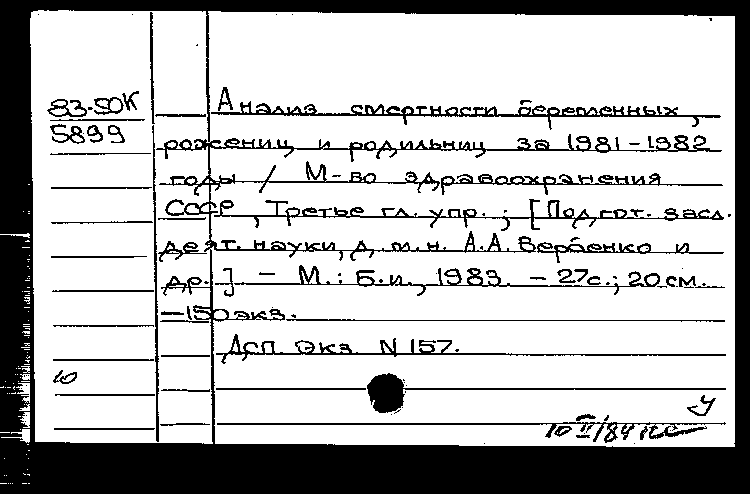 83-50К
5899
Анализ смертности беременных,
рожениц и родильниц за 1981-1982
годы / М-во здравоохранения
СССР, Третье гл. упр.; [Подгот. засл.
деят. науки, д.м.н. А.А. Вербенко и
др.] - М.: Б.и., 1983. - 27с.; 20см.
-150экз.
Дсп. Экз. N 157.
10
У
10 II/84